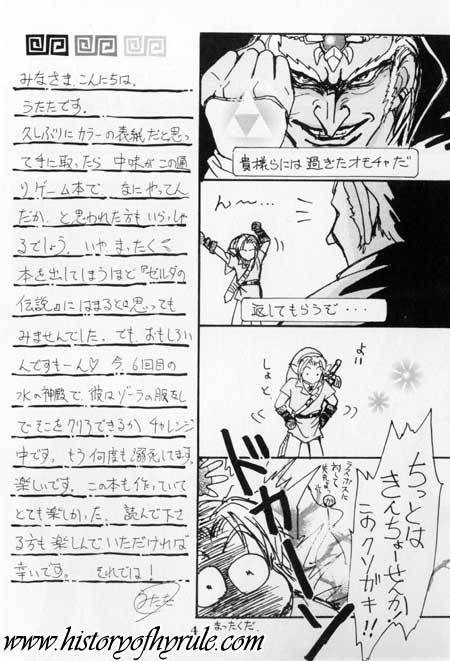 みなさま、こんにちは。
うたたです。
久しぶりにカラーの表紙だと思っ
て手に取ったら 中味がこの通
りゲーム本で、なにやってん
だか、と思われた方も いらっしゃ
るでしょう、いや、まったく
本を出してしまうほど『ゼルダの
伝説』にはまるとは思っても
みませんでした。でも、おもしろい
んですもーん♡ 今、6回目の
水の神殿で、彼はゾーラの服なし
でそこをクリアできるか チャレンジ
中です。もう何度も溺死してます。
楽しいです。この本も作っていて
とても楽しかった、読んで下さ
る方も 楽しんでいただければ
幸いです。それでは!
うたた
貴様らには 過ぎたオモチャだ
ん〜…
返してもらうむ・・・
よい
しょ と、
ちっとは
きんちょーせんか!
このクソガキ!!
ドカーッ
まったくだ。
4
www.historyofhyrule.com